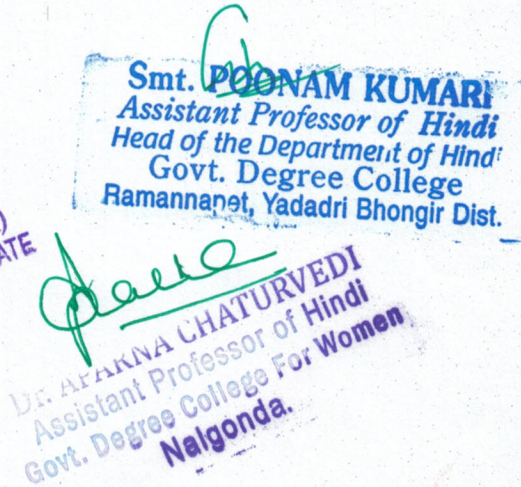 Smt. POONAM KUMARI
Assistant Professor of Hindi
Head of the Department of Hindi
Govt. Degree College
Ramannapet, Yadadri Bhongir Dist.
)
ATE
Dr. APARNA CHATURVEDI
Assistant Professor of Hindi
Govt. Degree College For Women
Nalgonda.